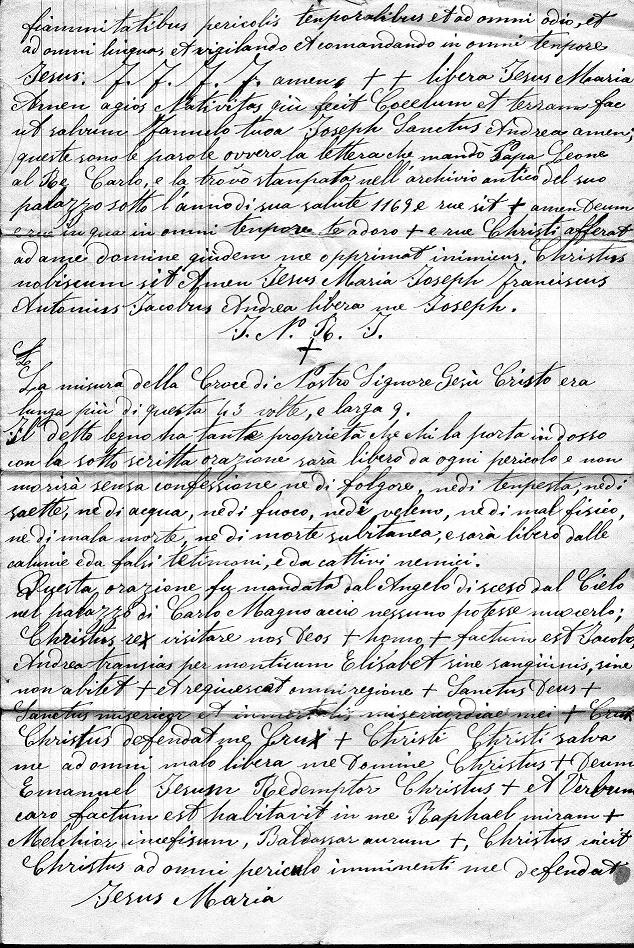 fiammitatibus pericolis temporalibus et ad omni odio, et
ad omni lingua, et vigilando et comandando in omni tenpore
Jesus. J. J. J. J. amen, + + libera Jesus Maria
Amen agios Nativitas qui fecit Coeelum et terram fac
ut salvum famulo tuoa Joseph Sanctus Andrea amen,
queste sono le parole ovvero la lettera che mandò Papa Leone
al Re Carlo, e la trovò stanpata nell'archivio antico del suo
palazzo sotto l'anno di sua salute 1169 e rue sit + amen Deum
e rue in qua in omni tenpore te adoro + e rue Christi afferat
ad ame domine quidem me opprimat inimicus. Christus
nobiscum sit Amen Jesus Maria Joseph Franciscus
Antonius Jacobus Andrea libera me Joseph.
J. N. R. J.
+
La misura della Croce di Nostro Signore Gesù Cristo era
lunga più di questa 43 volte, e larga 9.
Il detto legno ha tante proprietà che chi la porta in dosso
con la sotto scritta orazione sarà libero da ogni pericolo e non
morirà sensa confessione ne di folgore, ne di tenpesta, ne di
saette, ne di acqua, ne di fuoco, ne di veleno, ne di mal fisico,
ne di mala morte, ne di morte subitanea, e sarà libero dalle
calunie e da falsi tetimoni, e da cattivi nemici.
Questa orazione fu mandata dal Angelo di sceso dal Cielo
nel palazzo di Carlo Magno acciò nessuno potesse nuocerlo;
Christus rex visitare nos Deos + homo + factum est Jacobo,
Andrea transias per monticum Elisabet sine sanguinis, sine
non abitet + et requiescat omni regione + Sanctus Deus +
Sanctus misericor et inmortalis misericordiae mei + Crux
Christus defendat me Crux + Christi Christi salva
me ad omni malo libera me Domine Christus + Deum
Emanuel Jesum Redemptor Christus + et Verbum
caro factum est habitavit in me Raphael miram +
Melchior incefisum, Baldassar aurum +, Christus vicit
Christus ad omni periculo imminenti me defendat
Jesus Maria